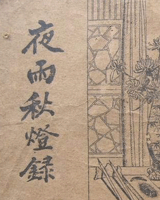 夜雨秋燈録